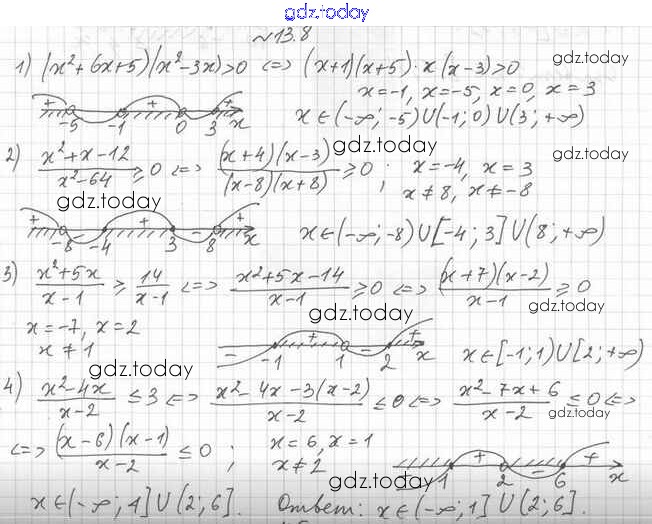 gdz.today
№13.8
1) (x²+6x+5)(x²-3x)>0 <=> (x+1)(x+5)·x(x-3)>0
gdz.today
x=-1, x=-5, x=0, x=3
+ - + - +
-5 -1 0 3 x
x∈(-∞; -5)∪(-1; 0)∪(3; +∞)
2) (x²+x-12)/(x²-64) ≥0 <=> ((x+4)(x-3))/((x-8)(x+8)) ≥0 ; x=-4, x=3
gdz.today
gdz.today
x≠8, x≠-8
gdz.today
+ - + - +
-8 -4 3 8 x
x∈(-∞; -8)∪[-4; 3]∪(8; +∞)
3) (x²+5x)/(x-1) ≥ 14/(x-1) <=> (x²+5x-14)/(x-1) ≥0 <=> ((x+7)(x-2))/(x-1) ≥0
gdz.today
x=-7, x=2
x≠1
- + - +
-1 1 2 x
x∈[-1; 1)∪[2; +∞)
gdz.today
4) (x²-4x)/(x-2) ≤3 <=> (x²-4x-3(x-2))/(x-2) ≤0 <=> (x²-7x+6)/(x-2) ≤0 <=>
gdz.today
<=> ((x-6)(x-1))/(x-2) ≤0 ; x=6, x=1
x≠2
- + - +
1 2 6 x
gdz.today
x∈(-∞; 1]∪(2; 6]. Ответ: x∈(-∞; 1]∪(2; 6].
gdz.today